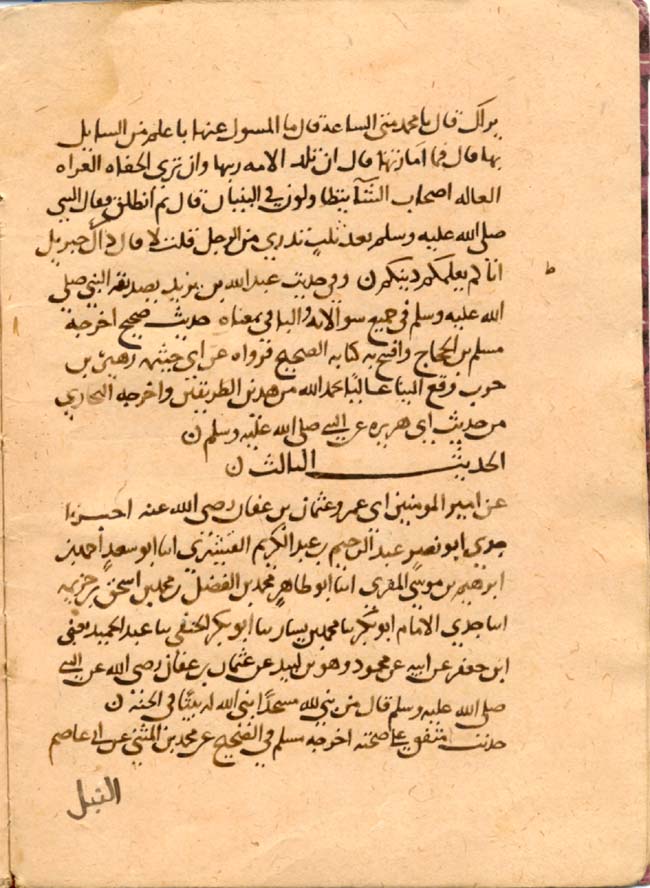 يراك قال يا محمد متى الساعة قال ما المسول عنها باعلم من السايل
بها قال فما امارتها قال ان تلد الامه ربها وان ترى الحفاه العراه
العاله اصحاب الشآ يتطاولون في البنيان قال ثم انطلق فقال النبي
صلى الله عليه وسلم بعد ثلث تدري من الرجل قلت لا قال ذاك جبريل
اتاكم يعلمكم دينكم ن وفي حديث عبد الله بن يزيد بصديقه النبي صلى
الله عليه وسلم في جميع سوالاته والباقي بمعناه حديث صحيح اخرجه
مسلم بن الحجاج وافتتح به كتابه الصحيح فرواه عن ابي خيثمه زهير بن
حرب وقع الينا عاليا بحمد الله من هذين الطريقين واخرجه البخاري
من حديث ابي هريره عن النبي صلى الله عليه وسلم ن
الحديث الثالث ن
عن امير المومنين ابي عمرو عثمان بن عفان رضي الله عنه اخبرنا
جدي ابو نصر عبد الرحيم بن عبد الكريم القشيري انبا ابو سعد احمد بن
ابرهيم بن موسى المقرى انبا ابو طاهر محمد بن الفضل بن محمد بن اسحق بن خزيمه
انبا جدي الامام ابو بكر نا محمد بن بشار نا ابو بكر الحنفي نا عبد الحميد يعني
ابن جعفر عن ابيه عن محمود وهو بن لبيد عن عثمان بن عفان رضي الله عن النبي
صلى الله عليه وسلم قال من بنى لله مسجدا بنى الله له بيتا في الجنة ن
حديث متفق على صحته اخرجه مسلم في الصحيح عن محمد بن المثنى عن ابي عاصم
النبيل
ط